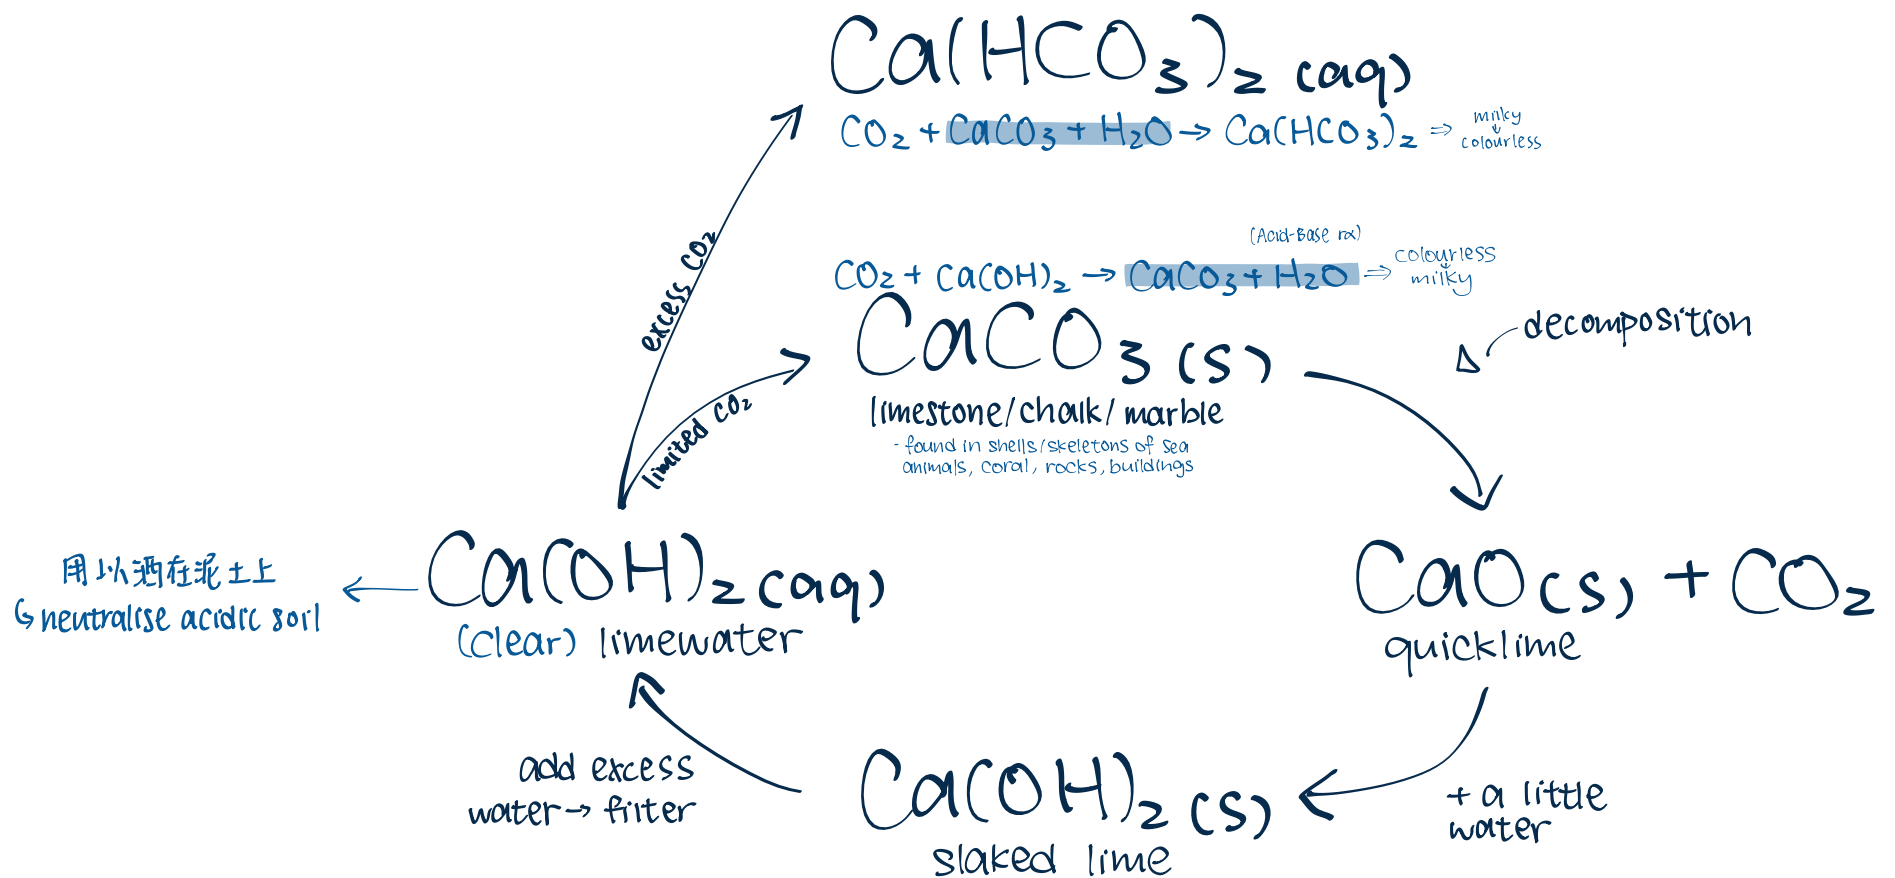 Ca(HCO₃)₂ (aq)
CO₂ + CaCO₃ + H₂O → Ca(HCO₃)₂ ⇒ milky
↓
colourless
excess CO₂
(Acid-Base rx)
CO₂ + Ca(OH)₂ → CaCO₃ + H₂O ⇒ colourless
↓
milky
CaCO₃ (s)
limestone/chalk/marble
- found in shells/skeletons of sea
animals, coral, rocks, buildings
limited CO₂
Δ
decomposition
用以洒在泥土上
↳ neutralise acidic soil
Ca(OH)₂ (aq)
(clear) limewater
CaO (s) + CO₂
quicklime
add excess
water → filter
Ca(OH)₂ (s)
slaked lime
+ a little
water